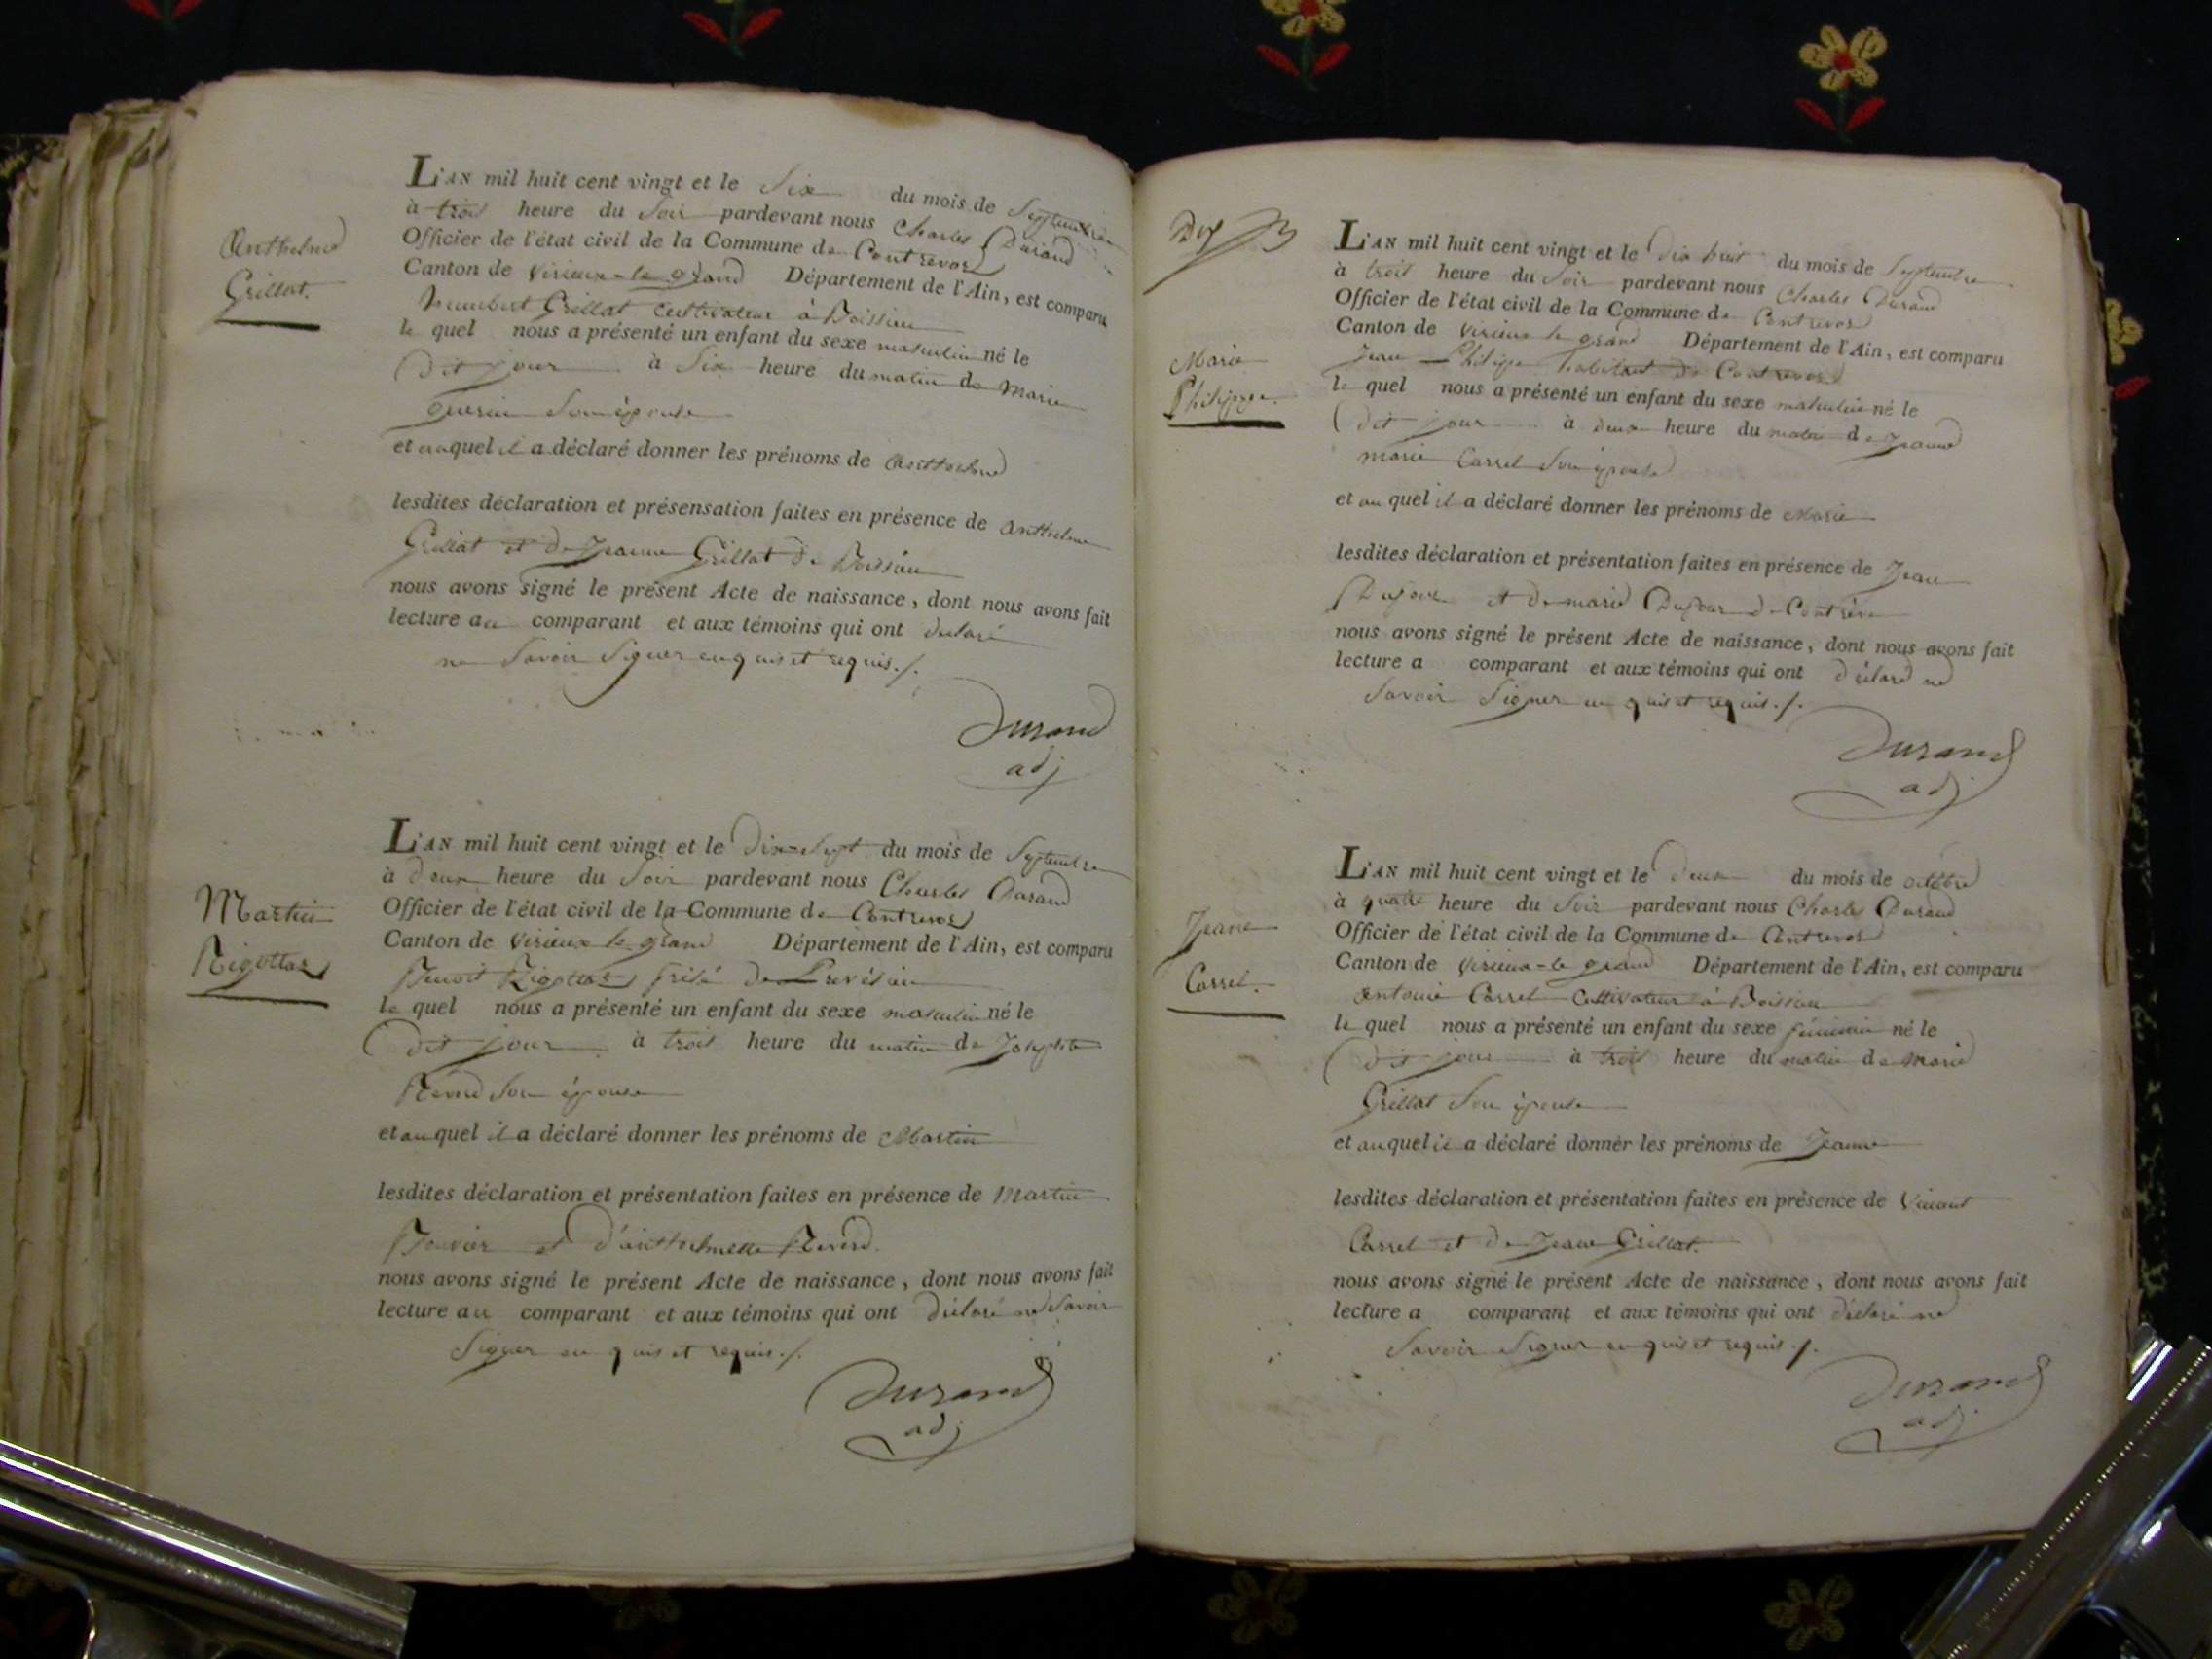 Anthelme
Grillat.
L'AN mil huit cent vingt et le Six du mois de Septembre
à trois heure du Soir pardevant nous Charles Durand
Officier de l'état civil de la Commune de Contrevoz
Canton de Virieux-le grand Département de l'Ain, est comparu
humbert Grillat Cultivateur à Boissieu
le quel nous a présenté un enfant du sexe masculin né le
dit jour à Six heure du matin de Marie
guerin Son épouse
et auquel il a déclaré donner les prénoms de Anthelme
lesdites déclaration et présensation faites en présence de anthelme
Grillat et de Jeanne Grillat de Boissieu
nous avons signé le présent Acte de naissance, dont nous avons fait
lecture au comparant et aux témoins qui ont declaré
ne Savoir Signer enquis et requis ./.
Durand
adj
Martin
Rigottaz
L'AN mil huit cent vingt et le dix-Sept du mois de Septembre
à deux heure du Soir pardevant nous Charles Durand
Officier de l'état civil de la Commune de Contrevoz
Canton de Virieux le grand Département de l'Ain, est comparu
Benoit Rigottaz de
le quel nous a présenté un enfant du sexe masculin né le
dit jour à trois heure du matin de Josephte
Son épouse
et au quel il a déclaré donner les prénoms de Martin
lesdites déclaration et présentation faites en présence de Martin
et d'anthelmette
nous avons signé le présent Acte de naissance, dont nous avons fait
lecture au comparant et aux témoins qui ont déclaré ne Savoir
Signer en quis et requis ./.
Durand
adj
Marie
Philippe.
L'AN mil huit cent vingt et le dix huit du mois de Septembre
à trois heure du Soir pardevant nous Charles Durand
Officier de l'état civil de la Commune de Contrevoz
Canton de Virieux le grand Département de l'Ain, est comparu
Jean Philippe habitant de Contrevoz
le quel nous a présenté un enfant du sexe masculin né le
dit jour à deux heure du matin de Jeanne
marie Carrel Son épouse
et au quel il a déclaré donner les prénoms de Marie
lesdites déclaration et présentation faites en présence de Jean
Dufour et de marie Dufour de
nous avons signé le présent Acte de naissance, dont nous avons fait
lecture a comparant et aux témoins qui ont déclaré ne
Savoir Signer en quis et requis ./.
Durand
adj
Jeane
Carrel.
L'AN mil huit cent vingt et le deux du mois de octobre
à quatre heure du Soir pardevant nous Charles Durand
Officier de l'état civil de la Commune de Contrevoz
Canton de Virieux-le grand Département de l'Ain, est comparu
antoine Carrel Cultivateur à Boissieu
le quel nous a présenté un enfant du sexe féminin né le
dit jour à trois heure du matin de Marie
Grillat Son épouse
et au quel il a déclaré donner les prénoms de Jeanne
lesdites déclaration et présentation faites en présence de Vincent
Carrel et de Jeane Grillat.
nous avons signé le présent Acte de naissance, dont nous avons fait
lecture a comparant et aux témoins qui ont déclaré ne
Savoir Signer enquis et requis ./.
Durand
adj